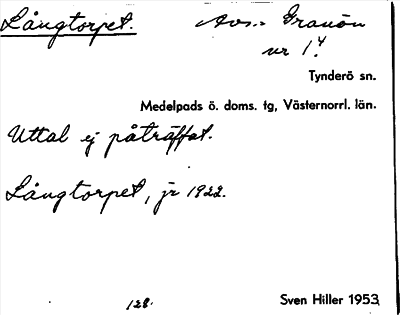 Långtorpet. Avs.: Granön
nr 1⁴
Tynderö sn.
Medelpads ö. doms. tg, Västernorrl. län.
Uttal ej påträffat.
Långtorpet, jr 1922.
128.
Sven Hiller 1953